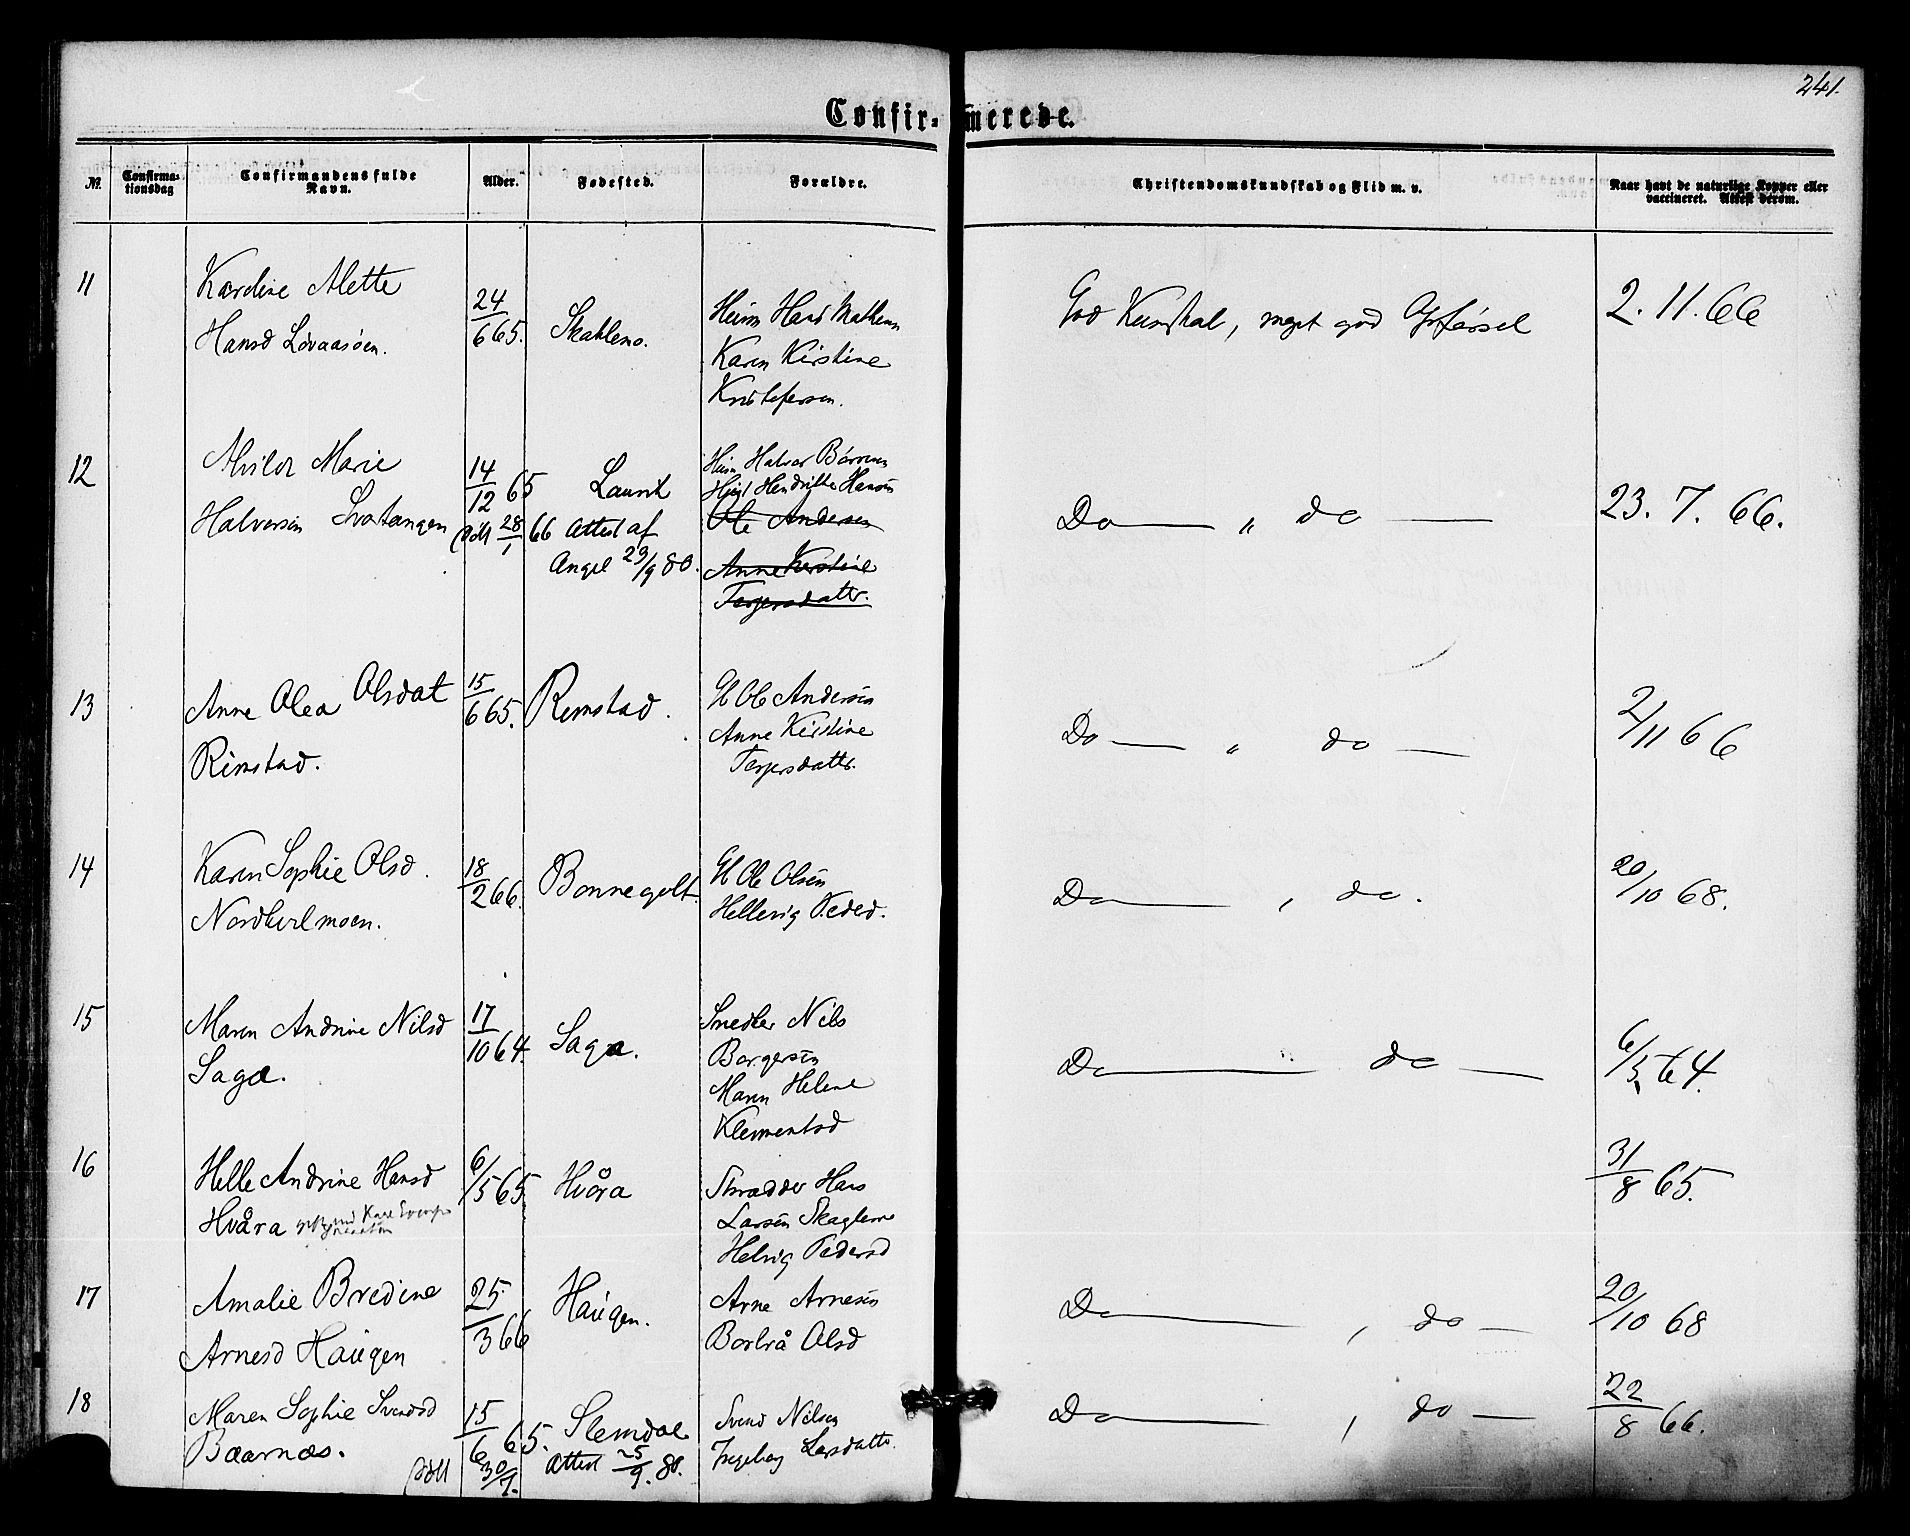 241.
Confir- merede.
№. Confirma-tionsdag Confirmandens fulde Navn. Alder. Fødested. Forældre. Christendomskundskab og Flid m. v. Naar havt de naturlige Kopper eller vaccineret. Attest derom.
11 Karoline Alette 24/6 65. Skahleno. Husm Hans Mathsen God Kundskab, meget god Opførsel 2. 11. 66
Hansd Løvaasøen. Karen Kirstine
Kristofersen.
12 Alvilde Marie 14/12 65 Laurit Husm Halvor Børresen Do " do 23. 7. 66.
Halvorsen Svatangen Døbt 28/1 66 Attest af Hendrikke Hansen
Angel 29/9 80. Ole Andersen
Anne Kirstine
Terjersdattr.
13 Anne Olea Olsdat 15/6 65. Rimstad. G Ole Andersen Do " do 2/11 66
Rimstad. Anne Kirstine
Terjersdattr.
14 Karen Sophie Olsd. 18/2 66. Bonnegolt G Ole Olsen Do , do. 20/10 68.
Hellevig Peded.
15 Maren Andrine Nilsd 17/10 64. Saga. Snedker Nils Do do 6/5 64.
Saga. Borgersen
Maren Helene
Klementsd
16 Helle Andrine Hansd 6/5 65. Hvåra Skrædder Hans 31/8 65.
Hvåra gift med Karl Larsen Skaglem
Helvig Pedersd
17 Amalie Bredine 25/3 66 Haugen. Arne Arnesen Do , do 20/10 68
Arnesd Haugen Borbrå Olsd
18 Maren Sophie Svendsd 15/6 65. Slemdal Svend Nilsen Do , do 22/8 66.
Baarnæs. Døbt 30/7. Attest 25/9. 80. Ingeborg Larsdattr.